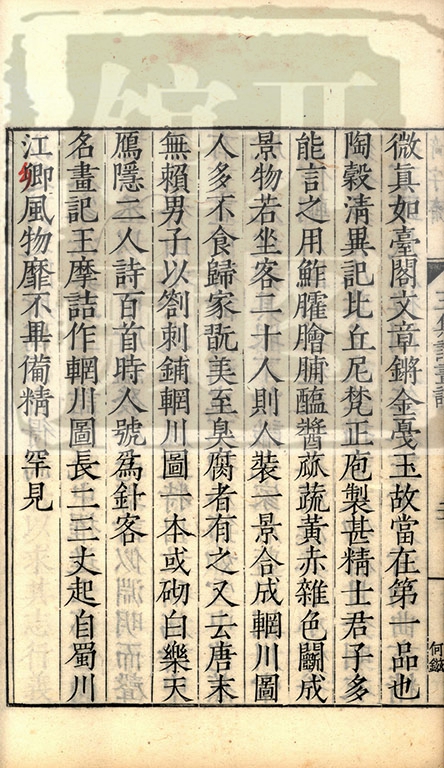 微真如臺閣文章鏘金戛玉故當在第一品也
陶穀淸異記比丘尼梵正庖製甚精士君子多
能言之用鮓臛膾脯醢醬苽蔬黃赤雜色鬭成
景物若坐客二十人則人裝一景合成輞川圖
人多不食歸家翫美至臭腐者有之又云唐末
無賴男子以劄刺鋪輞川圖一本或砌白樂天
鴈隱二人詩百首時人號爲針客
名畫記王摩詰作輞川圖長上三丈起自蜀川
江鄉風物靡不畢備精 罕見